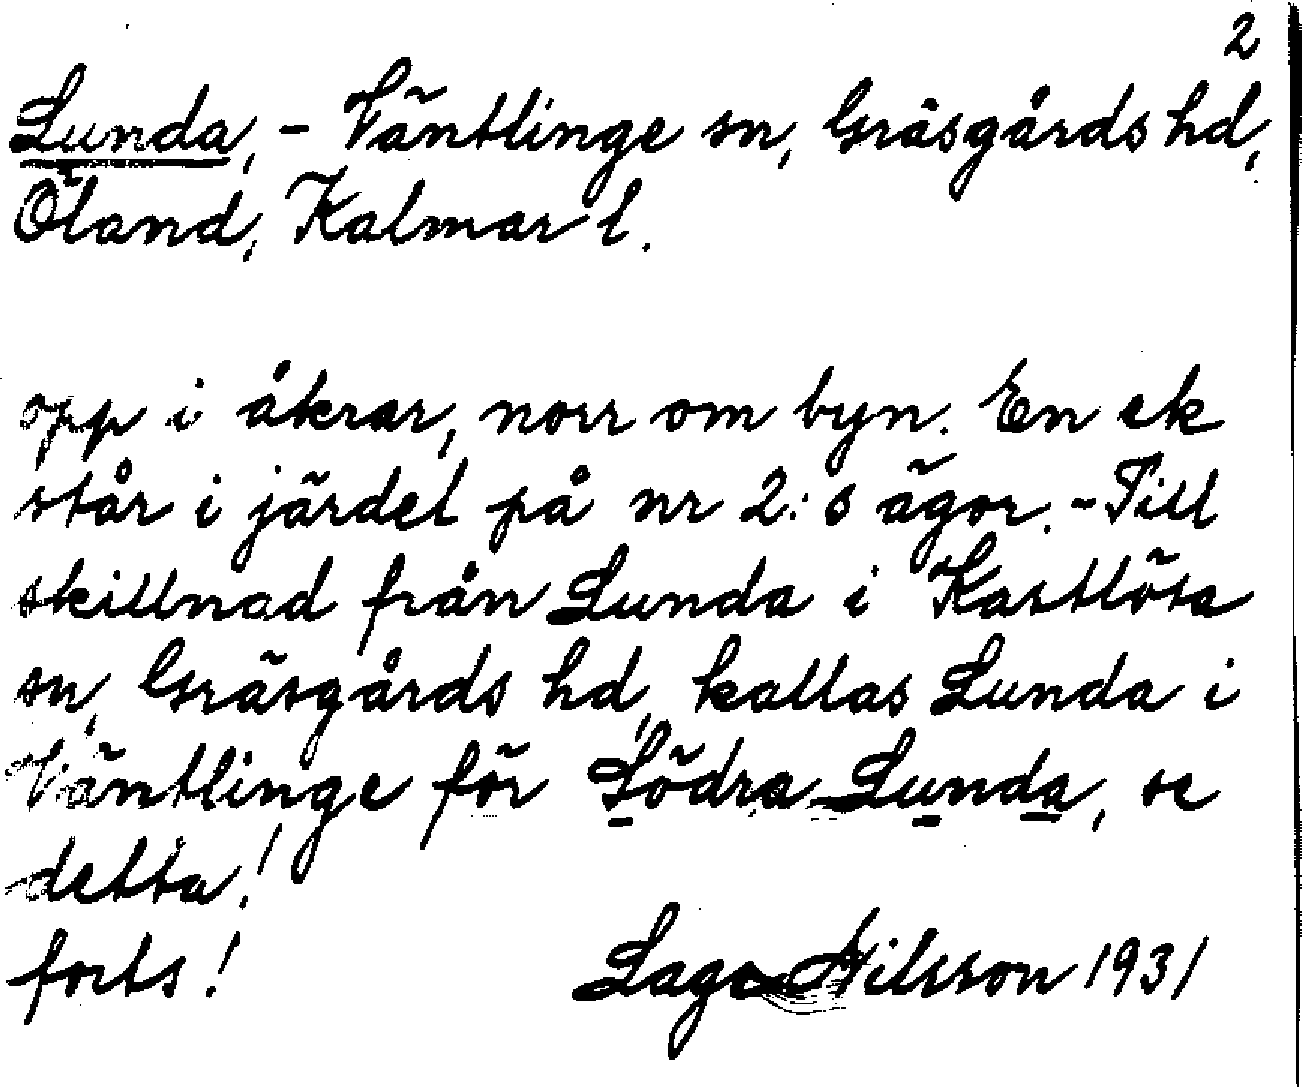 2
Lunda, - Väntlinge sn, Gräsgårds hd,
Öland, Kalmar l.
opp i åkrar, norr om byn. En ek
står i järdet på nr 2:s ägor. - Till
skillnad från Lunda i Kastlösa
sn, Gräsgårds hd, kallas Lunda i
Väntlinge för Södra Lunda, se
detta!
forts! Lage Nilsson 1931